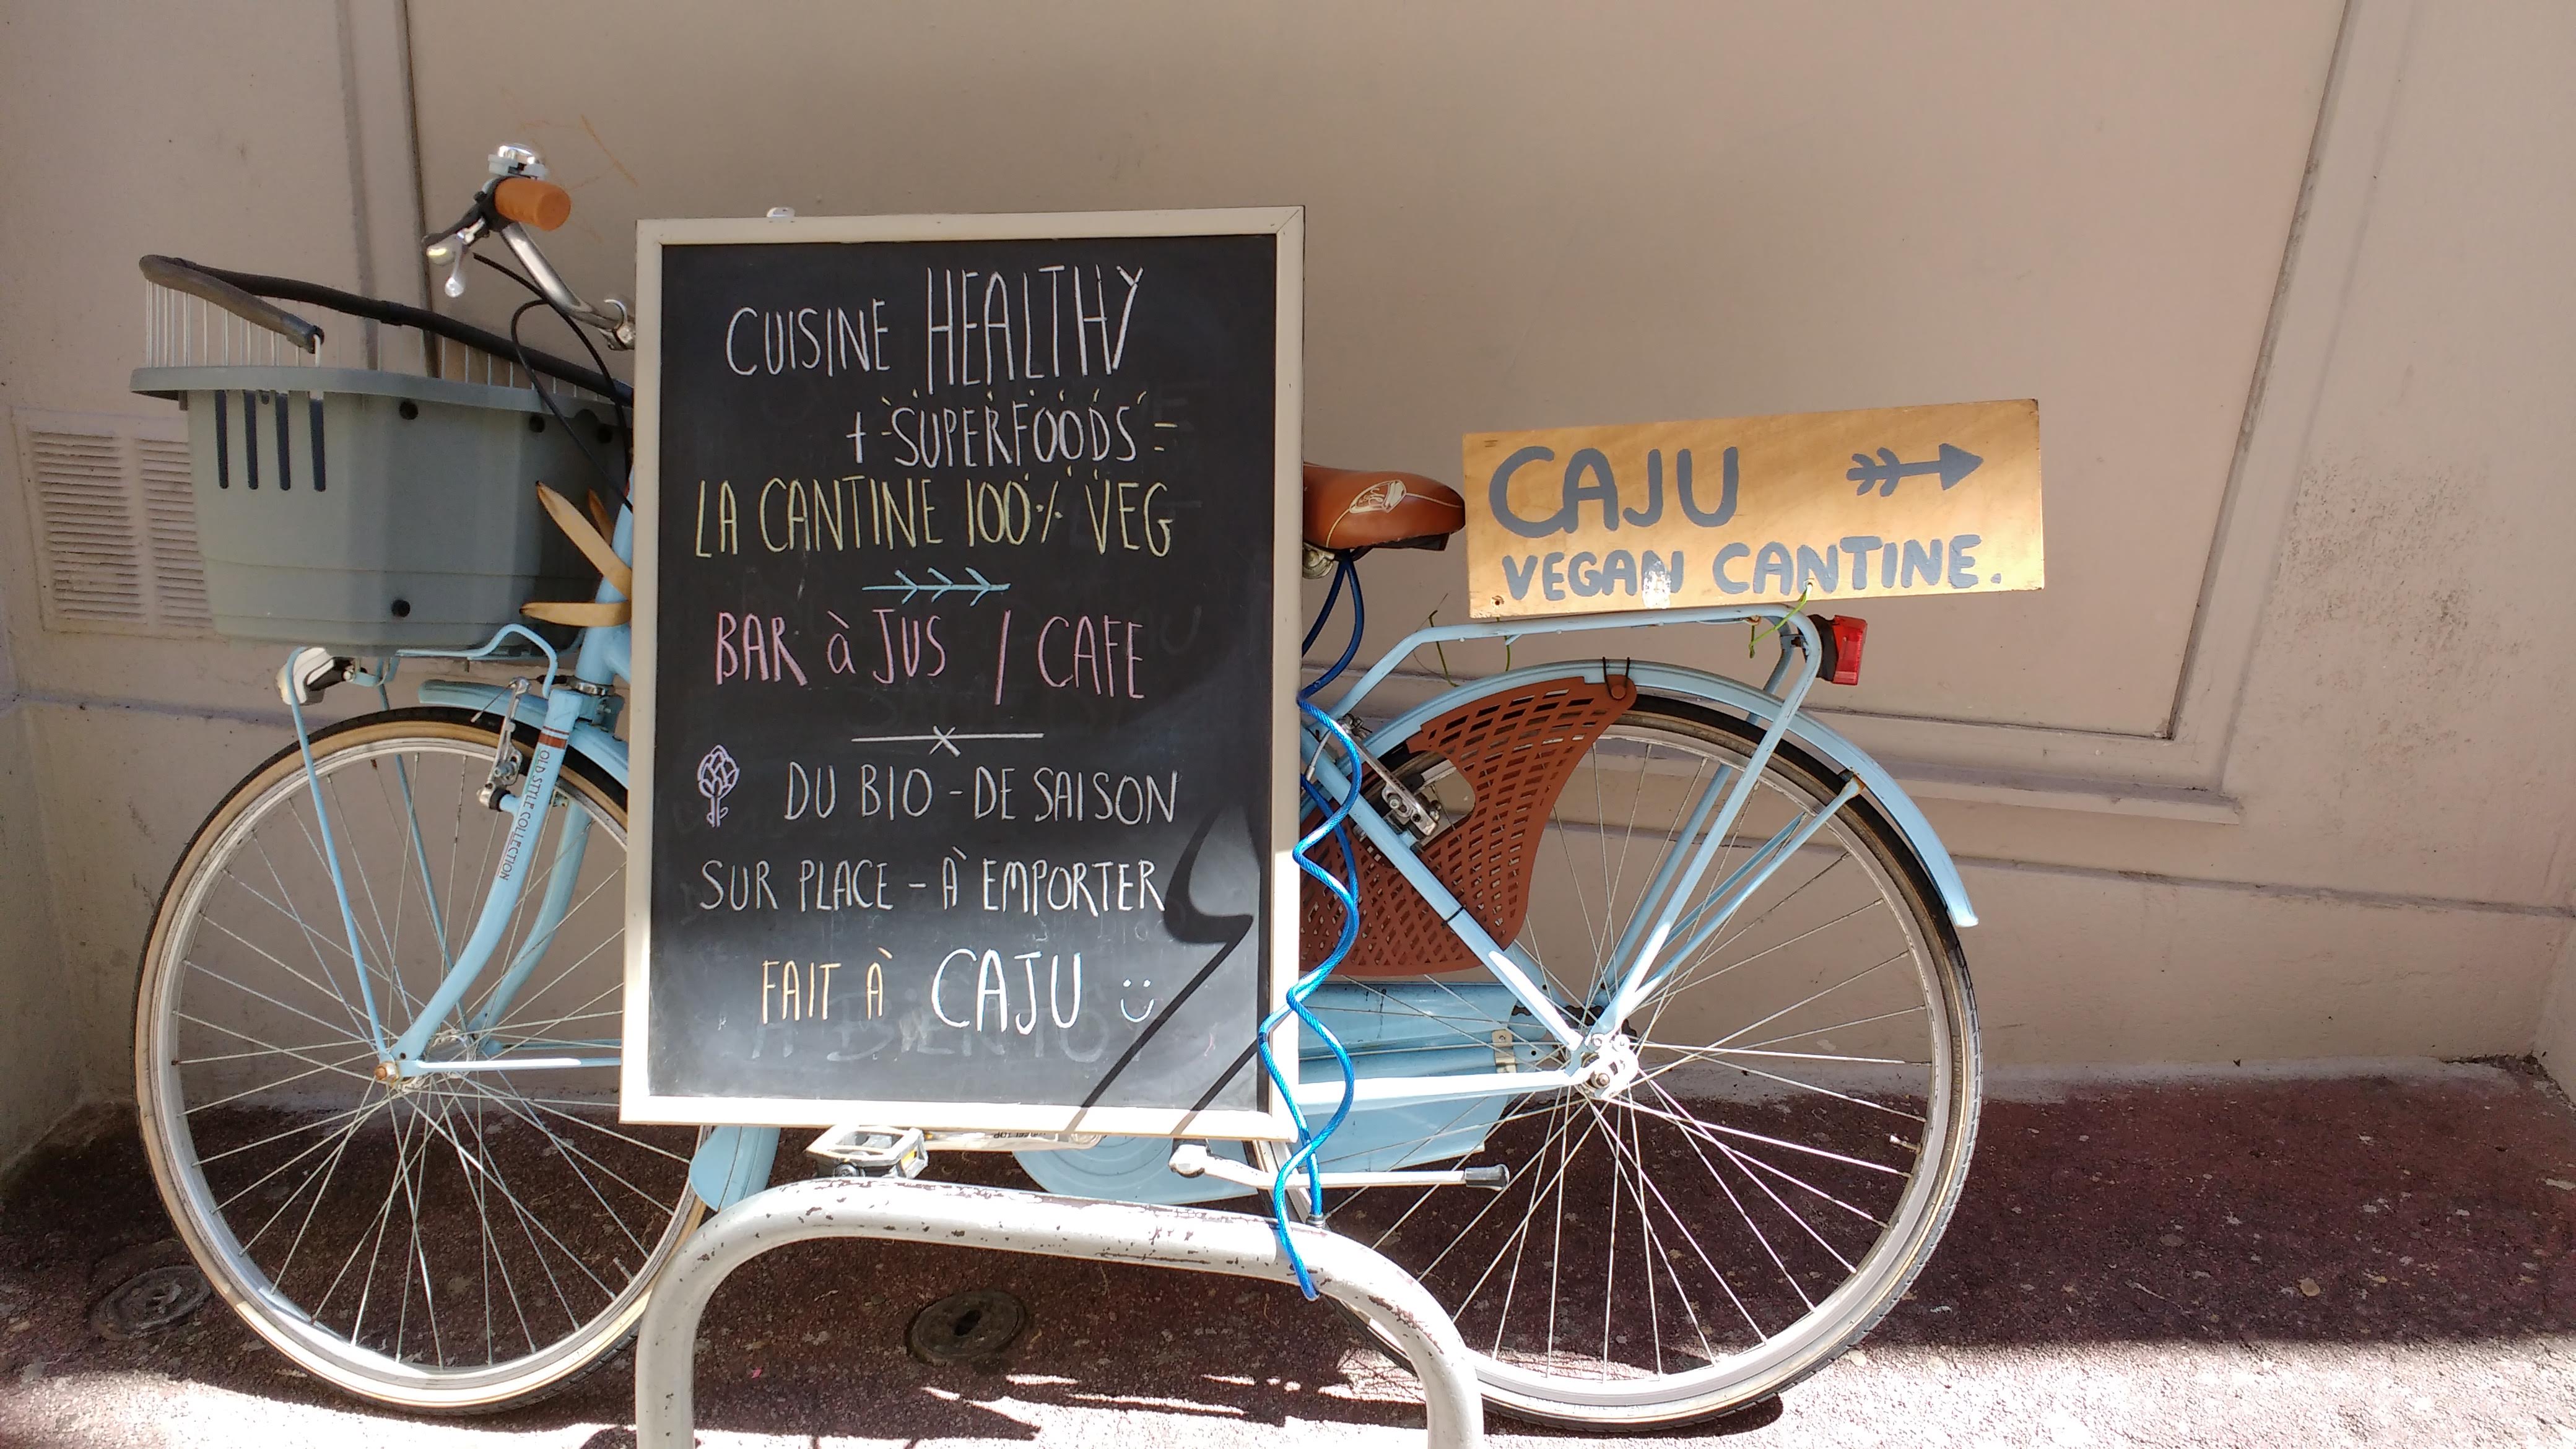 CUISINE HEALTHY
+ SUPERFOODS
LA CANTINE 100% VEG
BAR à JUS / CAFE
DU BIO - DE SAISON
SUR PLACE - À EMPORTER
FAIT À CAJU
CAJU
VEGAN CANTINE.
OLD STYLE COLLECTION